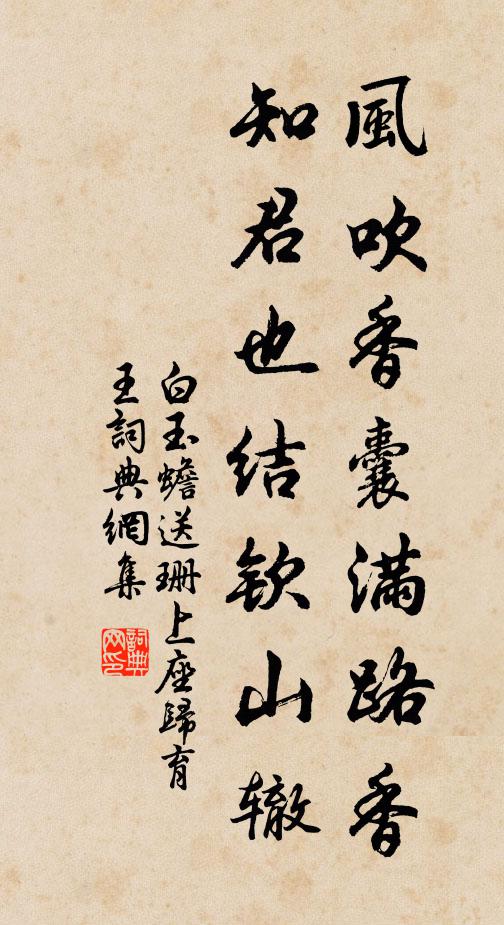 風吹香囊满路香
知君也结钦山辙
白玉蟾送珊上座歸育
王詞典網集
詞典网印